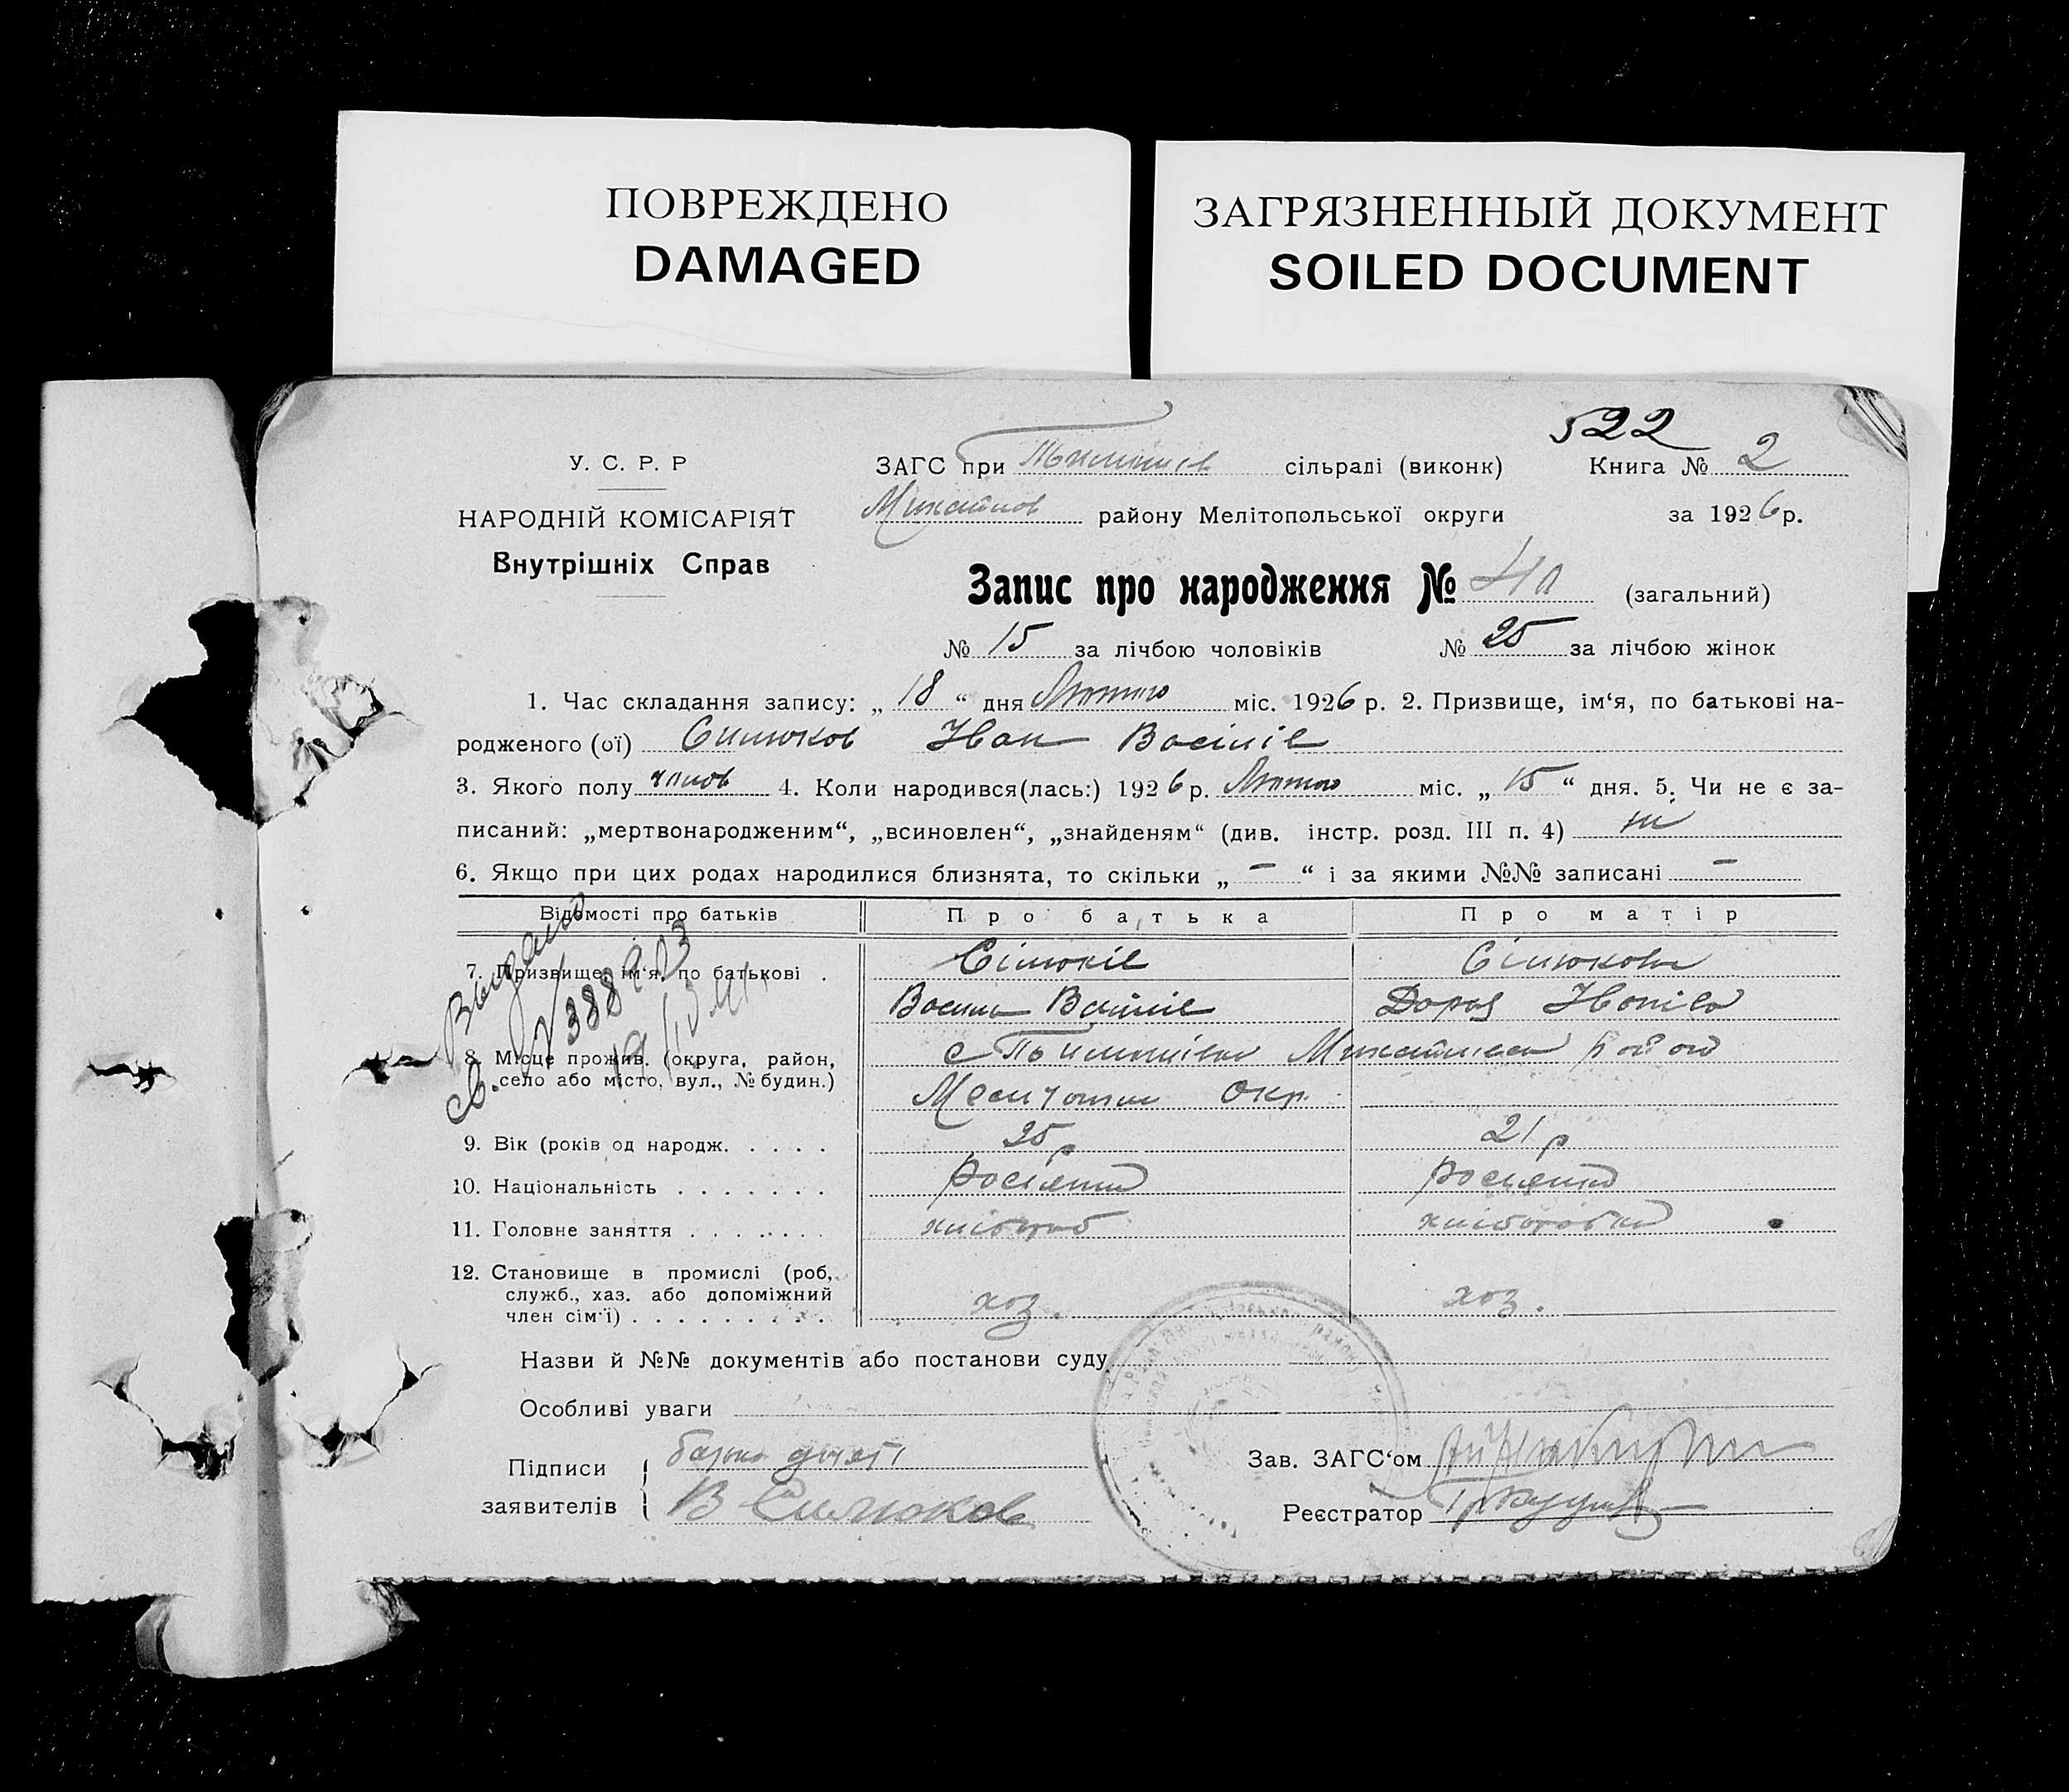 ПОВРЕЖДЕНО
DAMAGED
ЗАГРЯЗНЕННЫЙ ДОКУМЕНТ
SOILED DOCUMENT
522
У. С. Р. Р
НАРОДНІЙ КОМІСАРІЯТ
Внутрішніх Справ
ЗАГС при сільраді (виконк) Книга № 2
району Мелітопольської округи за 1926 р.
Запис про народження № 40 (загальний)
№ 15 за лічбою чоловіків № 25 за лічбою жінок
1. Час складання запису: „ 18 “ дня Лютого міс. 1926 р. 2. Призвище, ім‘я, по батькові на-
родженого (ої) Силюков Іван Васілів
3. Якого полу чолов 4. Коли народився(лась:) 1926 р. Лютого міс. „ 15 “ дня. 5. Чи не є за-
писаний: „мертвонародженим“, „всиновлен“, „знайденям“ (див. інстр. розд. III п. 4) ні
6. Якщо при цих родах народилися близнята, то скільки „ — “ і за якими №№ записані —
Відомості про батьків Про батька Про матір
7. Призвище, ім‘я, по батькові . Сілюків Сілюкова
Василь Васілів Іваніва
8. Місце прожив. (округа, район, с
село або місто, вул., № будин.) Окр.
9. Вік (років од народж. . . . . 25 р 21 р
10. Національність . . . . . . . росіянин
11. Головне заняття . . . . . . . хлібороб хліборобка
12. Становище в промислі (роб,
служб., хаз. або допоміжний хоз. хоз.
член сім‘ї) . . . . . . . . .
Выдано
св.
Назви й №№ документів або постанови суду
Особливі уваги
Підписи
заявителів
В Силюков
Зав. ЗАГС‘ом
Реєстратор